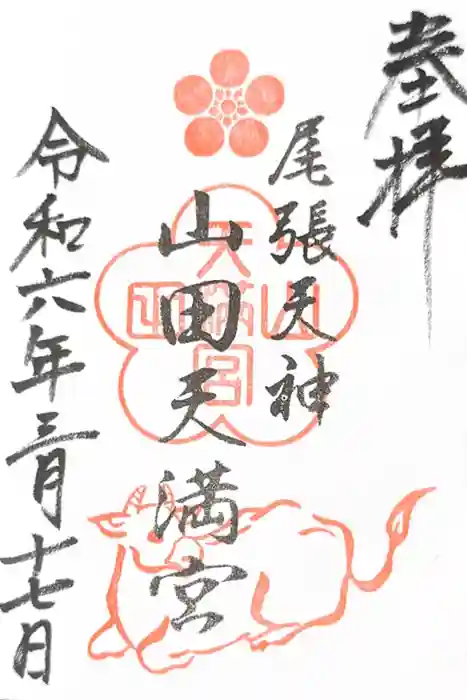 奉拝
尾張天神
山田天満宮
令和六年三月十七日
山田
天満宮